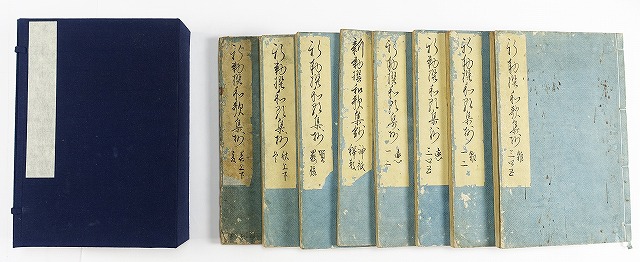 新勅撰和歌集抄
春上下
夏
新勅撰和歌集抄
秋上下
冬
新勅撰和歌集抄
賀
羈旅
新勅撰和歌集抄
神祇
釋教
新勅撰和歌集抄
恋
一二
新勅撰和歌集抄
恋
三四五
新勅撰和歌集抄
雑
一二
新勅撰和歌集抄
雑
三四五